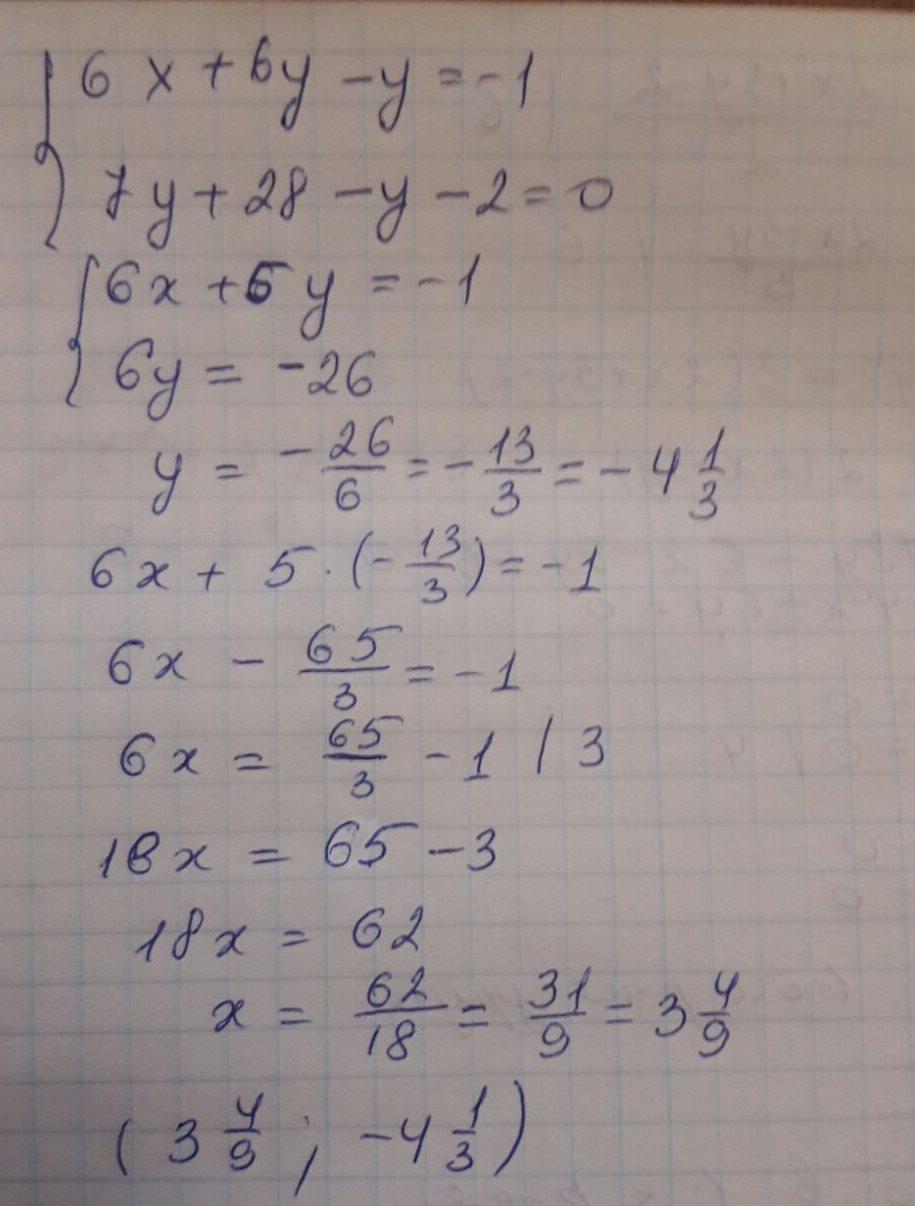 6x + 6y - y = -1
7y + 28 - y - 2 = 0
6x + 5y = -1
6y = -26
y = -26/6 = -13/3 = -4 1/3
6x + 5 · (-13/3) = -1
6x - 65/3 = -1
6x = 65/3 - 1 / 3
18x = 65 - 3
18x = 62
x = 62/18 = 31/9 = 3 4/9
(3 4/9 ; -4 1/3)